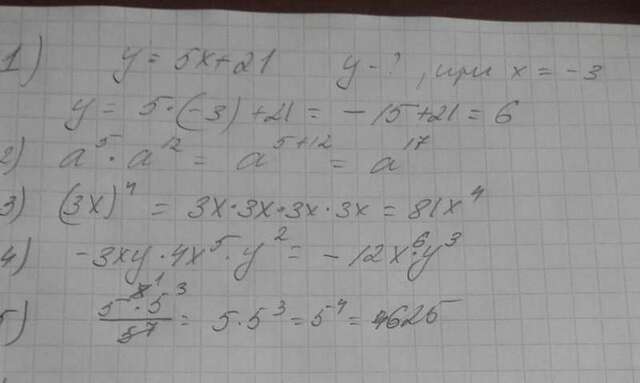 1) y = 5x+21 y - ? , при x = -3
y = 5·(-3)+21 = -15+21 = 6
2) a⁵·a¹² = a⁵⁺¹² = a¹⁷
3) (3x)⁴ = 3x·3x·3x·3x = 81x⁴
4) -3xy·4x⁵·y² = -12x⁶·y³
5) 5⁸ ¹·5³ / 5⁷ = 5·5³ = 5⁴ = 625